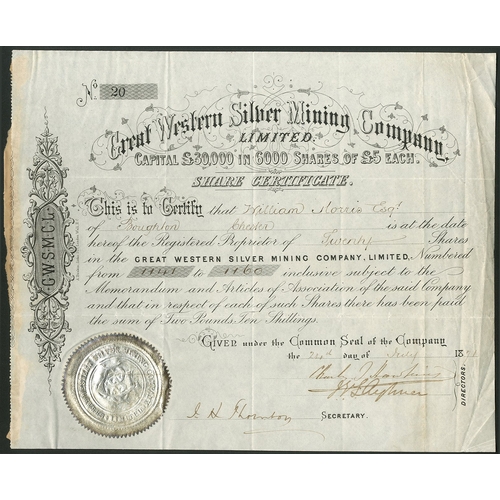 No. 20
Great Western Silver Mining Company,
LIMITED.
CAPITAL £30,000 IN 6000 SHARES OF £5 EACH.
SHARE CERTIFICATE.
This is to Certify that William Morris Esqr
of Boughton Chester is at the date
hereof the Registered Proprietor of Twenty Shares
in the GREAT WESTERN SILVER MINING COMPANY, LIMITED. Numbered
from 1141 to 1160 inclusive subject to the
Memorandum and Articles of Association of the said Company
and that in respect of each of such Shares there has been paid
the sum of Two Pounds Ten Shillings.
GIVEN under the Common Seal of the Company
the 24th day of July 18
DIRECTORS.
J H Thornton SECRETARY.
G.W.S.M.C.L.